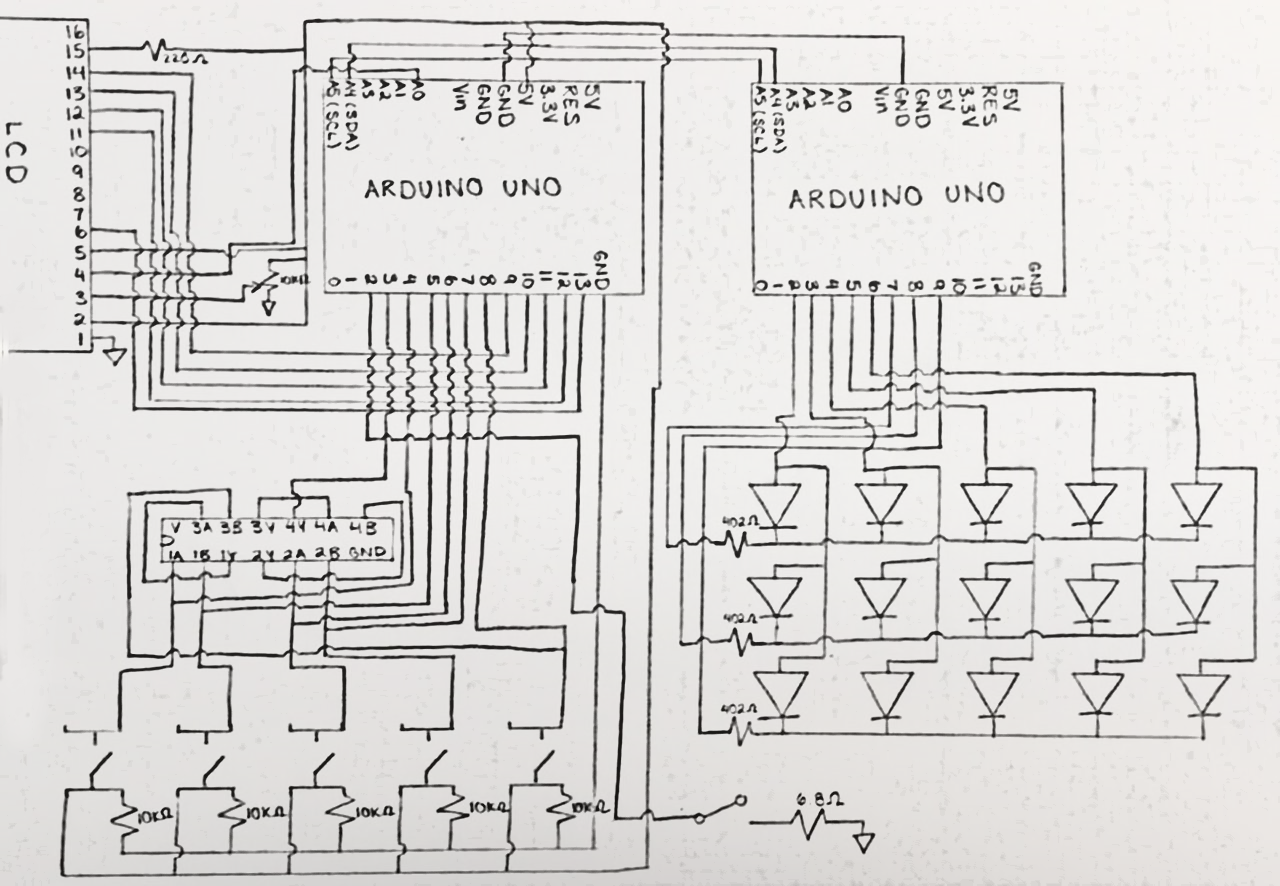 LCD
16
15
14
13
12
11
10
9
8
7
6
5
4
3
2
1
220Ω
10KΩ
A5(SCL) A4(SDA) A3 A2 A1 A0 Vin GND GND 5V 3.3V RES 5V
ARDUINO UNO
0 1 2 3 4 5 6 7 8 9 10 11 12 13 GND
A5(SCL) A4(SDA) A3 A2 A1 A0 Vin GND GND 5V 3.3V RES 5V
ARDUINO UNO
0 1 2 3 4 5 6 7 8 9 10 11 12 13 GND
V 3A 3B 3Y 4Y 4A 4B
1A 1B 1Y 2Y 2A 2B GND
402Ω
402Ω
402Ω
10KΩ 10KΩ 10KΩ 10KΩ 10KΩ
6.8Ω